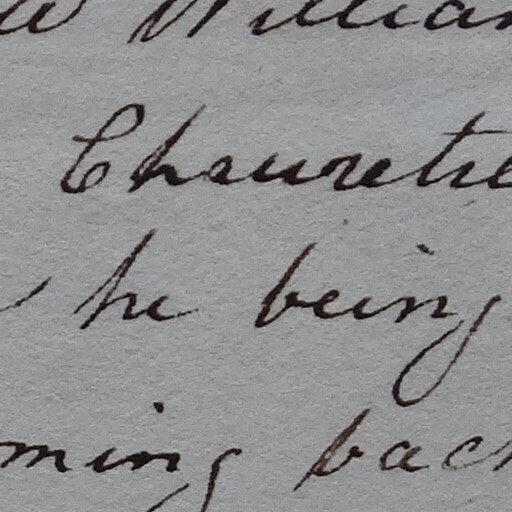 William
Chauretie
he being
ming back